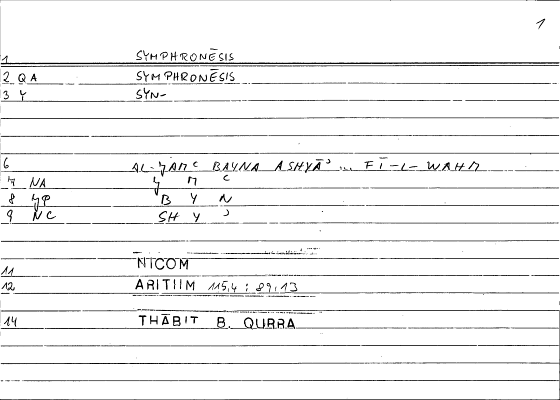 1
1 SYMPHRONĒSIS
2 QA SYMPHRONĒSIS
3 Y SYN-
6 AL-ǦAMʿ BAYNA ASHYĀʾ ... FĪ-L-WAHM
7 NA Ǧ M ʿ
8 B Y N
9 NC SH Y ʾ
11 NICOM
12 ARITIIM 115,4 : 89,13
14 THĀBIT B. QURRA